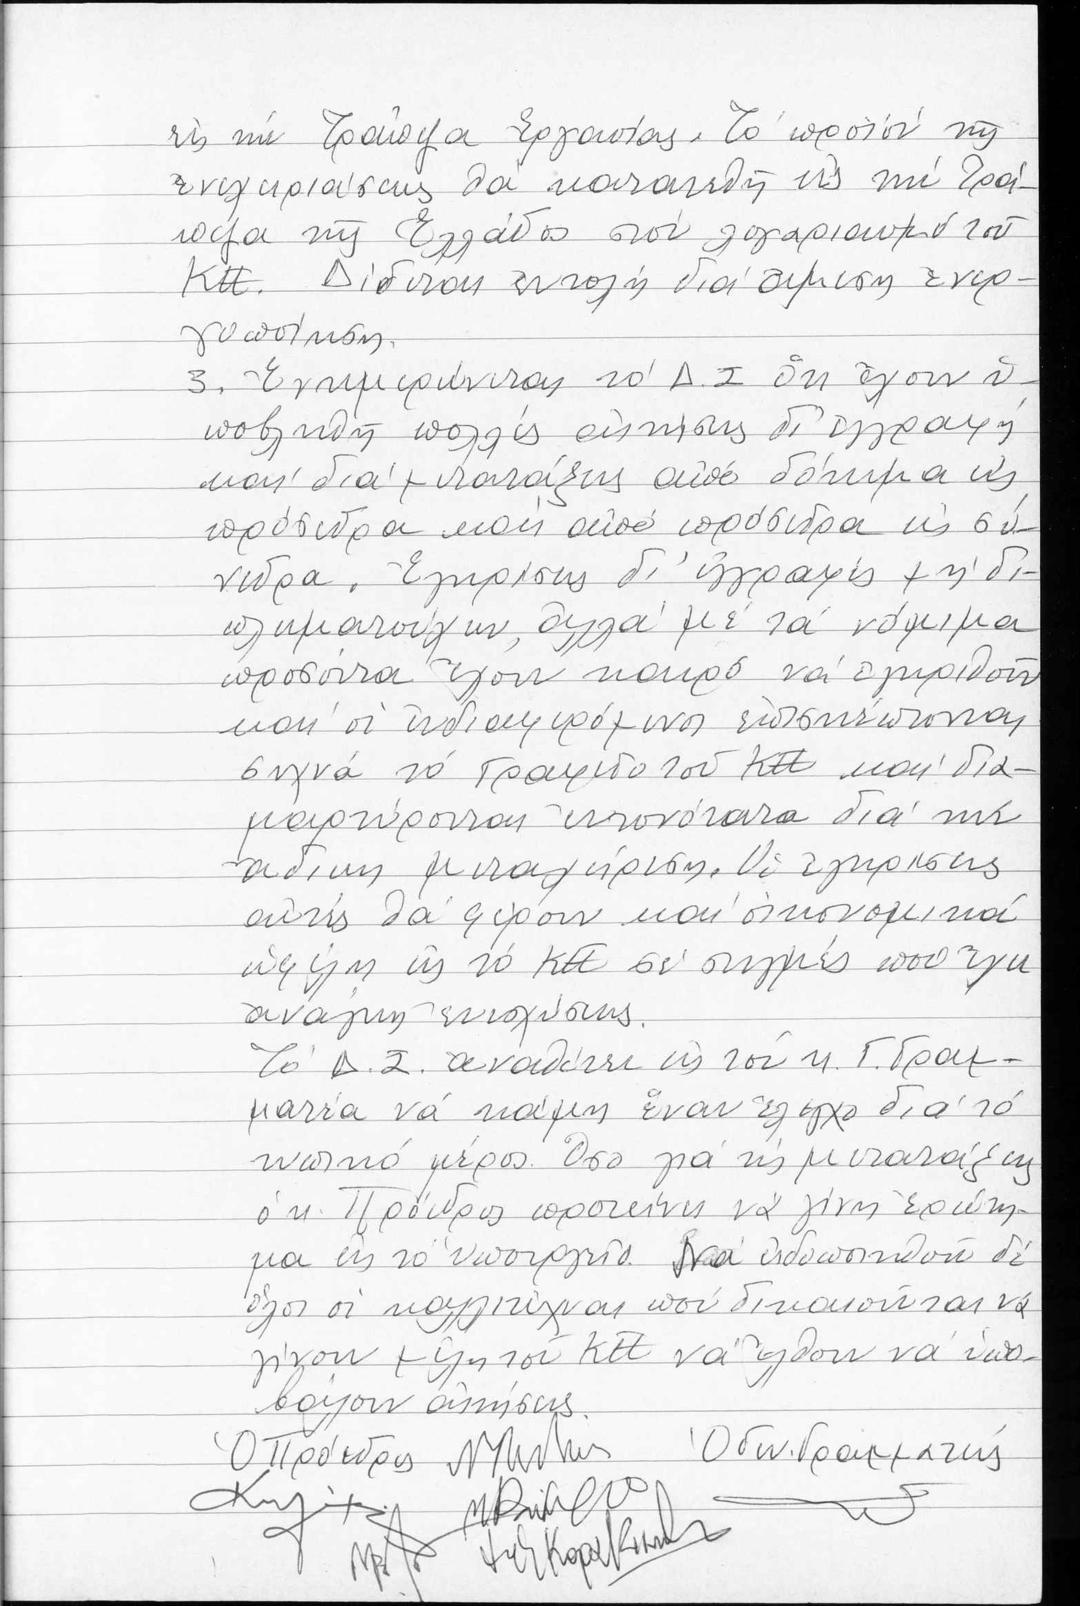 εἰς τήν Τράπεζα Ἐργασίας. Τό προϊόν τῆς
ἐνεχειριάσεως θά κατατεθῆ εἰς τήν Τρά-
πεζα τῆς Ἑλλάδος στόν λογαριασμό τοῦ
ΚΕΕ. Δίδεται ἐντολή διά ἄμεση ἐνερ-
γοποίηση.
3. Ἐνημερώνεται τό Δ.Σ ὅτι ἔχουν ὑ-
ποβληθῆ πολλές αἰτήσεις δι' ἐγγραφή
καί διά μετατάξεις ἀπό δόκιμα εἰς
πρόσεδρα καί ἀπό πρόσεδρα εἰς σύ-
νεδρα. Ἐγκρίσεις δι' ἐγγραφές μή δι-
πλωματούχων, ἀλλά μέ τά νόμιμα
προσόντα ἔχουν καιρό νά ἐγκριθοῦν
καί οἱ ἐνδιαφερόμενοι ἐπισκέπτονται
συχνά τό Γραφεῖο τοῦ ΚΕΕ καί δια-
μαρτύρονται ἐντονότατα διά τήν
ἄδικη μεταχείριση. Οἱ ἐγκρίσεις
αὐτές θά φέρουν καί οἰκονομικά
ὠφέλη εἰς τό ΚΕΕ σέ στιγμές πού ἔχει
ἀνάγκη ἐνισχύσεως.
Τό Δ.Σ. ἀναθέτει εἰς τόν κ. Γ. Γραμ-
ματέα νά κάμη ἕναν ἔλεγχο διά τό
τυπικό μέρος. Ὅσο γιά τίς μετατάξεις
ὁ κ. Πρόεδρος προτείνει νά γίνη ἐρώτη-
μα εἰς τό ὑπουργεῖο. Νά εἰδοποιηθοῦν δέ
ὅλοι οἱ καλλιτέχναι πού δικαιοῦνται νά
γίνουν μέλη τοῦ ΚΕΕ νά ἔλθουν νά ὑπο-
βάλουν αἰτήσεις.
Ὁ Πρόεδρος Ὁ Γεν. Γραμματεύς